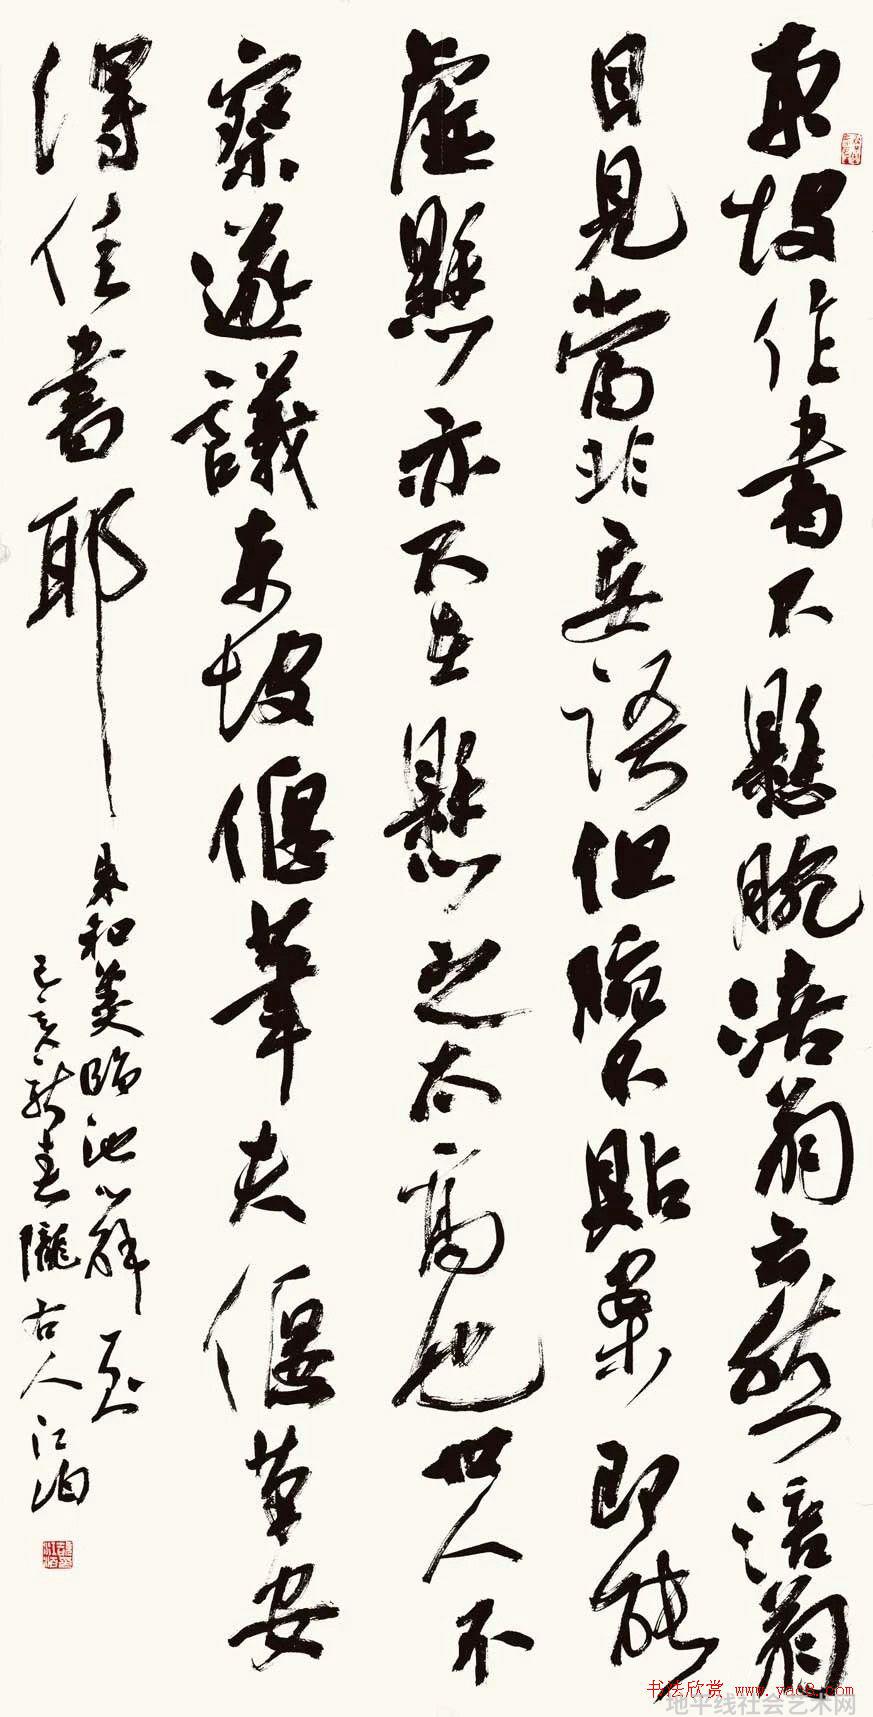 東坡作書不懸腕涪翁云然涪翁
目見當非妄語但腕不貼案即能
虛懸亦不在懸之太高也世人不
察遂議東坡偃筆夫偃筆安
得佳書耶
朱和羹臨池心解 句
己亥新春隴右人江泊
书法欣赏 www.yac8.com
地平线社会艺术网